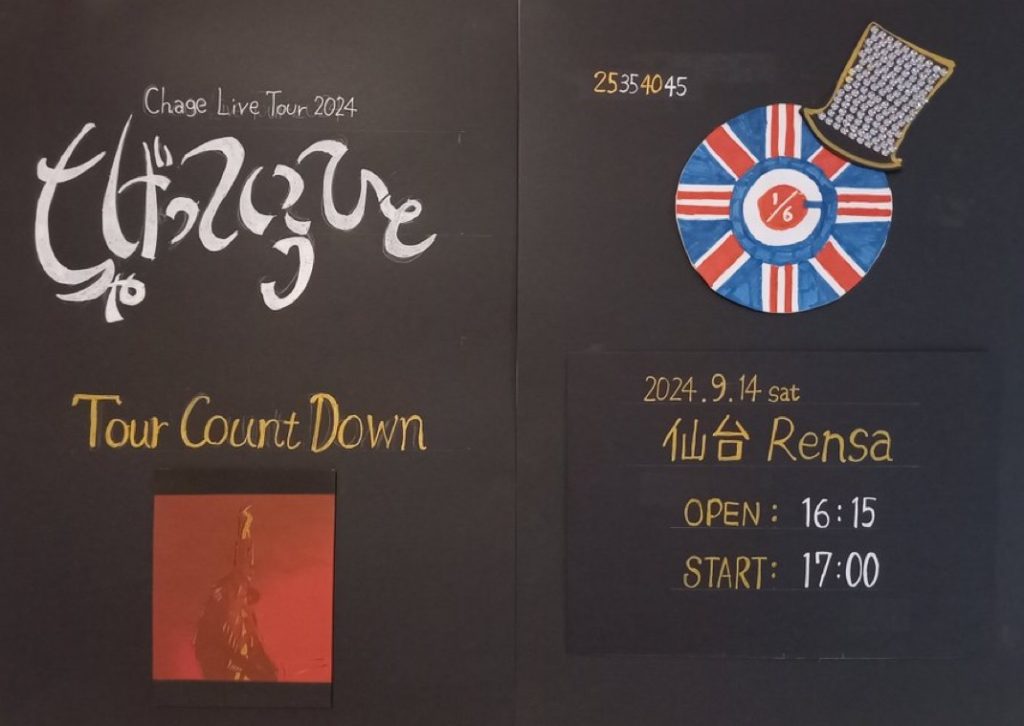 Chage Live Tour 2024
Tour Count Down
25354045
1/6
2024.9.14 sat
仙台 Rensa
OPEN: 16:15
START: 17:00